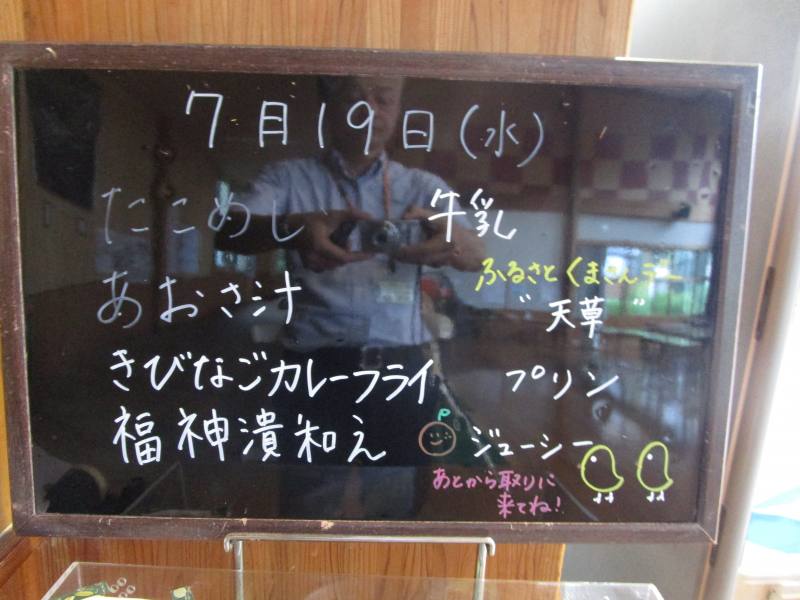 7月19日(水)
たこめし
牛乳
あおさ汁
ふるさとくまさんデー
"天草"
きびなごカレーフライ
プリン
福神漬和え
ジューシー
あとから取りに
来てね!